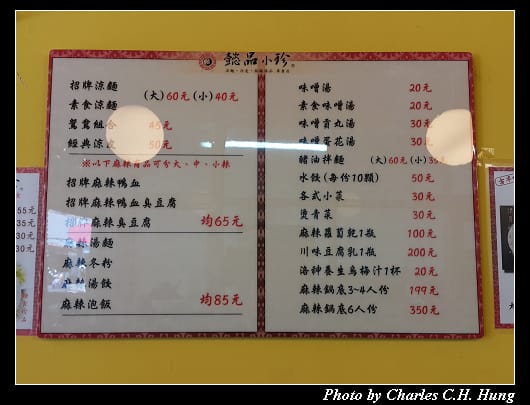 懿品小珍
招牌涼麵
素食涼麵
(大)60元 (小)40元
鴛鴦組合 45元
經典涼皮 50元
※以下麻辣商品可分大、中、小辣
招牌麻辣鴨血
招牌麻辣鴨血臭豆腐
招牌麻辣臭豆腐 均65元
麻辣湯麵
麻辣冬粉
麻辣湯餃
麻辣泡飯 均85元
味噌湯 20元
素食味噌湯 20元
味噌貢丸湯 30元
味噌蛋花湯 30元
豬油拌麵 (大)60元(小)35元
水餃(每份10顆) 50元
各式小菜 30元
燙青菜 30元
麻辣蘿蔔乾1瓶 100元
川味豆腐乳1瓶 200元
洛神養生烏梅汁1杯 20元
麻辣鍋底3~4人份 199元
麻辣鍋底6人份 350元
55元
35元
30元
Photo by Charles C.H. Hung